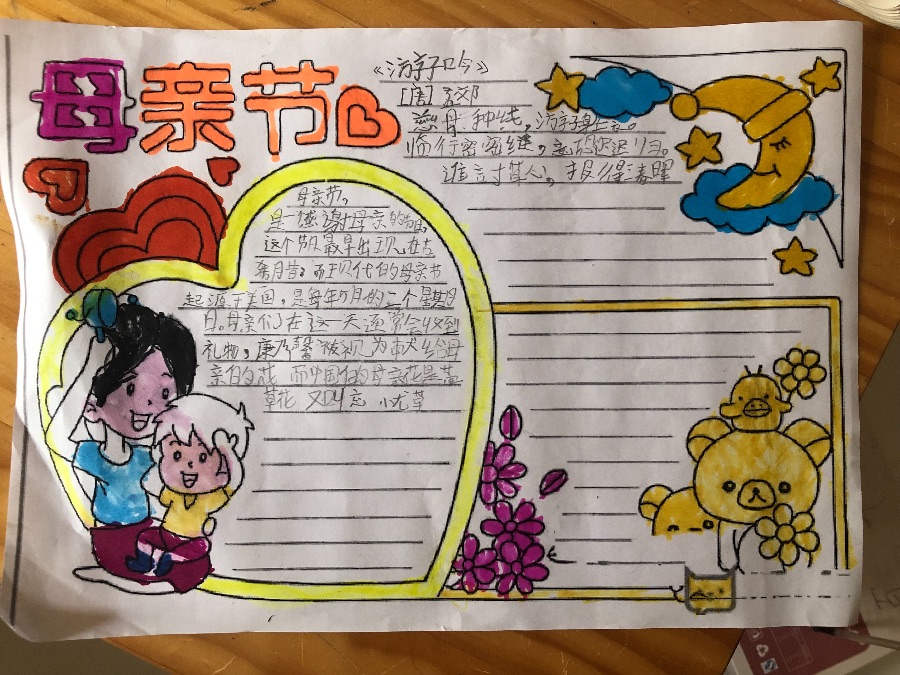 母亲节
《游子吟》
[唐] 孟郊
慈母 种线，游子身上衣。
临行密密缝，意恐迟迟归。
谁言寸草心，报得春晖
母亲节，
是一 感谢母亲的节日
这个节日最早出现在古
希腊；而现代的母亲节
起源于美国，是每年5月的二个星期
日。母亲们在这一天通常会收到
礼物，康乃馨被视为献给母
亲的花 而中国的母亲花是萱
草花 又叫忘 忧草